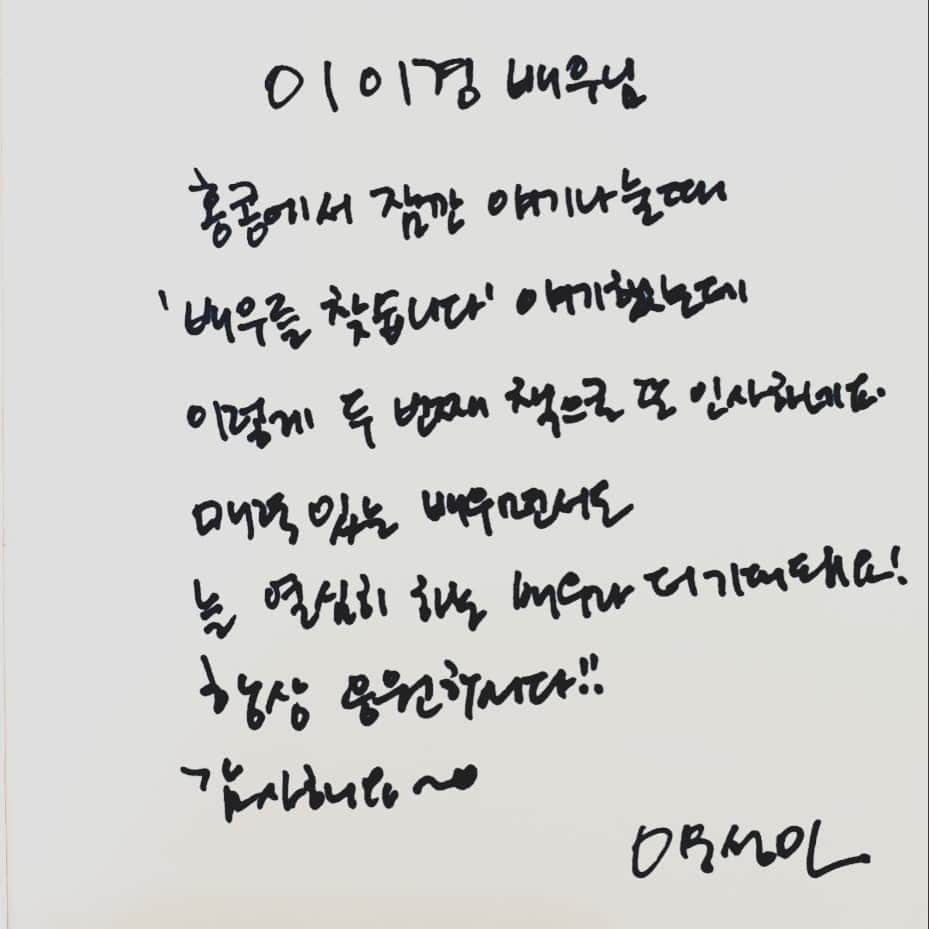 이이경 배우님
홍콩에서 잠깐 얘기나눌때
'배우를 찾습니다' 얘기했는데
이렇게 두 번째 책으로 또 인사하네요.
매력 있는 배우면서도
늘 열심히 하는 배우라 더 기대돼요!
항상 응원합시다!!
감사해요~♥